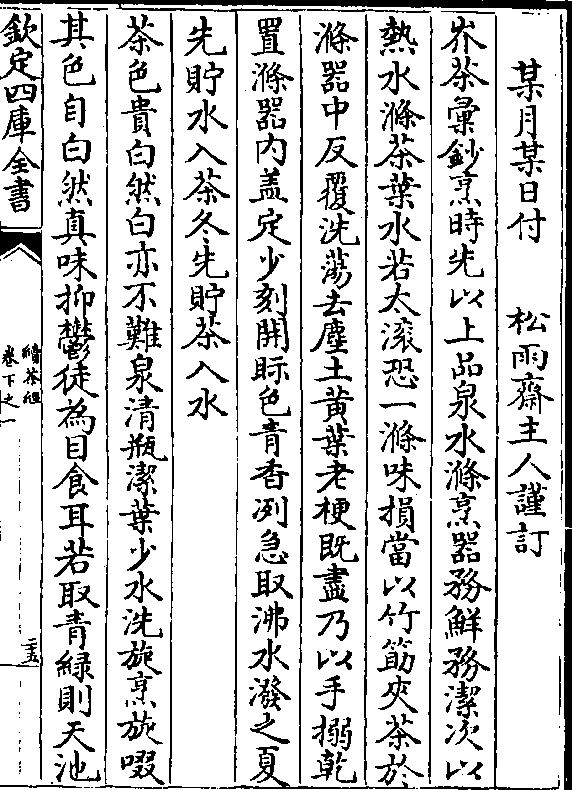 某月某日付　　松雨齋主人謹訂
岕茶彚鈔烹時先以上品泉水滌烹器務鮮務潔次以
熱水滌茶葉水若太滚恐一滌味損當以竹筯夾茶於
滌器中反覆洗蕩去塵土黄葉老梗既盡乃以手搦乾
置滌器内盖定少刻開眎色青香冽急取沸水潑之夏
先貯水入茶冬先貯茶入水
茶色貴白然白亦不難泉清瓶潔葉少水洗旋烹旋啜
其色自白然真味抑鬱徒為目食耳若取青緑則天池
欽定四庫全書
續茶經
卷下之一
二十五